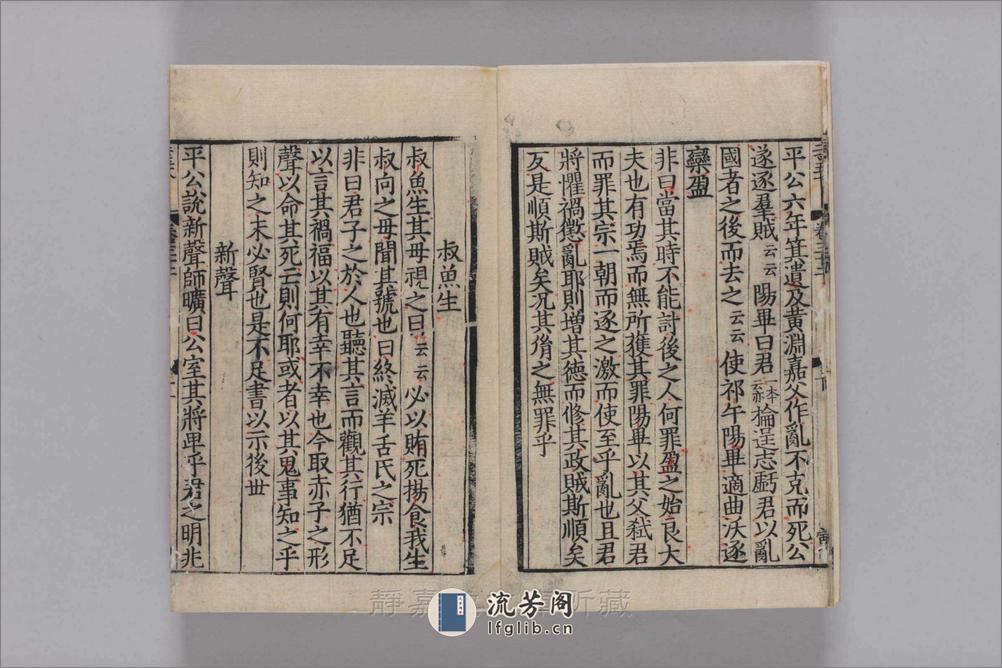 平公六年箕遺及黄淵嘉父作亂不克而死公
遂逐羣賊云云陽畢曰君一本云亦掄逞志虧君以亂
國者之後而去之云云使祁午陽畢適曲沃逐
欒盈
非曰當其時不能討後之人何罪盈之始良大
夫也有功焉而無所獲其罪陽畢以其父弑君
而罪其宗一朝而逐之激而使至乎亂也且君
將懼禍懲亂耶則增其德而修其政賊斯順矣
反是順斯賊矣況其胤之無罪乎
叔魚生
叔魚生其母視之曰云云必以賄死揚食我生
叔向之母聞其號也曰終滅羊舌氏之宗
非曰君子之於人也聽其言而觀其行猶不足
以言其禍福以其有幸不幸也今取赤子之形
聲以命其死亡則何耶或者以其鬼事知之乎
則知之未必賢也是不足書以示後世
新聲
平公說新聲師曠曰公室其將卑乎君之明兆
靜嘉 所藏
流芳阁
lfglib.cn